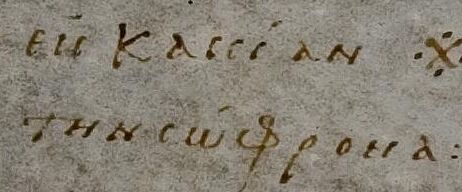 εἰς κασσίαν ※
τὴν σώφρονα: